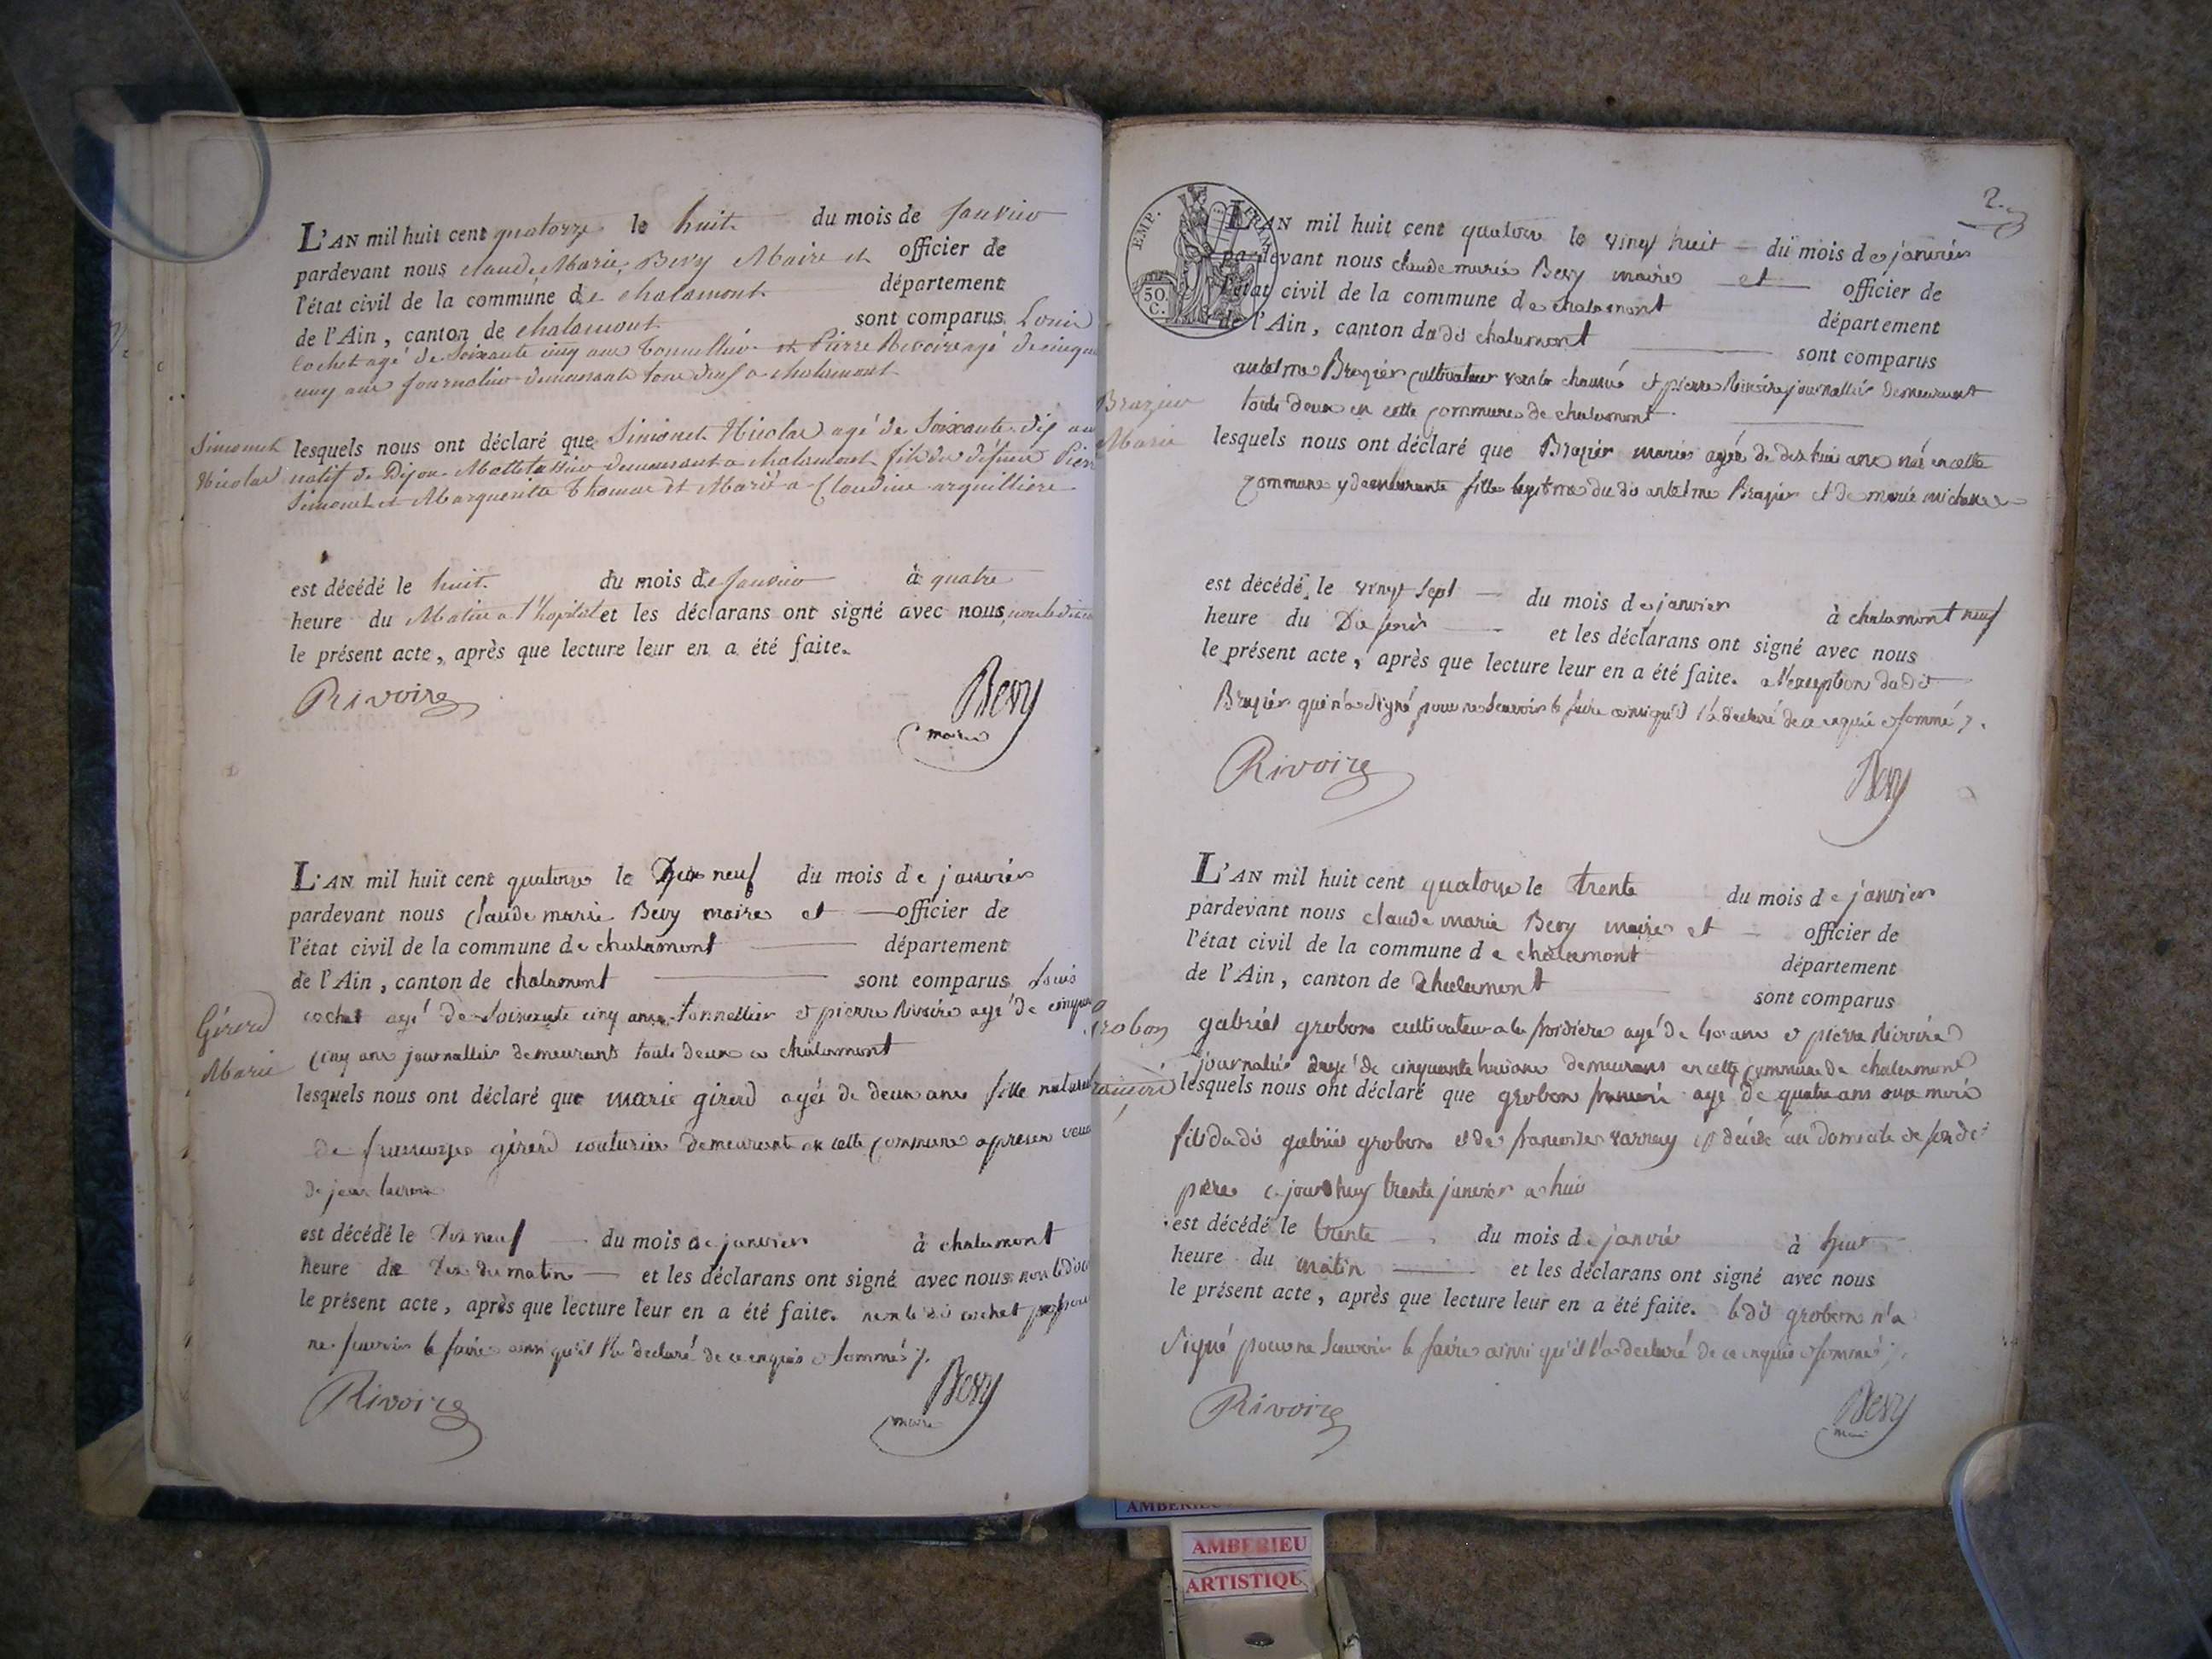 L'AN mil huit cent quatorze le huit du mois de Janvier
pardevant nous claude Marie Bevy Maire et officier de
l'état civil de la commune de chalamont département
de l'Ain, canton de chalamont sont comparus Louis
Cochet agé de Soixante cinq ans Tonnellier et Pierre Rivoire agé de cinqu
cinq ans Journalier demeurants tous deux a chalamont
Simonet
Nicolas
lesquels nous ont déclaré que Simonet Nicolas agé de Soixante dix an
natif de Dijon Mattelassier demeurant a chalamont fils de défunt Pier
Simonet et Marguerite Thomas et Marié a Claudine arguilliere
est décédé le huit du mois de Janvier à quatre
heure du Matin a l'hopital et les déclarans ont signé avec nous
le présent acte, après que lecture leur en a été faite.
Rivoire
Bevy
maire
L'AN mil huit cent quatorze le Dix neuf du mois de janvier
pardevant nous claude marie Bevy maire et officier de
l'état civil de la commune de chalamont département
de l'Ain, canton de chalamont sont comparus Louis
Girerd
Marie
cochet agé de Soixante cinq ans tonnellier et pierre Rivoire agé de cinqua
cinq ans journallier demeurants touts deux a chalamont
lesquels nous ont déclaré que marie girerd agée de deux ans fille naturel
de françoise girerd couturier demeurant en cette commune apresen veuv
de jean
est décédé le Dix neuf du mois de janvier à chalamont
heure de Dix du matin et les déclarans ont signé avec nous
le présent acte, après que lecture leur en a été faite. non le dit cochet pour
ne scavoir le faire ainsi qu'il l'a declaré de ce enquis et sommé
Rivoire
Bevy
maire
2
EMP. FRANÇ.
50.
C.
L'AN mil huit cent quatorze le vingt huit du mois de janvier
pardevant nous claude marie Bevy maire et officier de
l'état civil de la commune de chalamont département
de l'Ain, canton dudit chalamont sont comparus
antelme Brazier cultivateur et pierre Rivoire journallier demeurant
touts deux en cette commune de chalamont
Brazier
Marie
lesquels nous ont déclaré que Brazier marie agée de dix huit ans née en cette
commune y demeurante fille legitime du dit antelme Brazier et de marie
est décédé le vingt sept du mois de janvier à chalamont neuf
heure du Du soir et les déclarans ont signé avec nous
le présent acte, après que lecture leur en a été faite. a l'exception dudit
Brazier qui n'a signé pour ne scavoir le faire ainsi qu'il l'a declaré de ce enquis et sommé
Rivoire
Bevy
L'AN mil huit cent quatorze le trente du mois de janvier
pardevant nous claude marie Bevy maire et officier de
l'état civil de la commune de chalamont département
de l'Ain, canton de chalamont sont comparus
Grobon
gabriel grobon cultivateur a la agé de 40 ans et pierre Rivoire
journalier agé de cinquante huit ans demeurans en cette commune de chalamont
lesquels nous ont déclaré que grobon agé de quatre ans onze mois
fils dudit gabriel grobon et de francoise varnay est décédé au Domicile de son dit
père ce jourdhuy trente janvier a huit
est décédé le trente du mois de janvier à huit
heure du matin et les déclarans ont signé avec nous
le présent acte, après que lecture leur en a été faite. le dit grobon n'a
signé pour ne scavoir le faire ainsi qu'il l'a declaré de ce enquis et sommé
Rivoire
Bevy
maire
AMBERIEU
AMBERIEU
ARTISTIQU